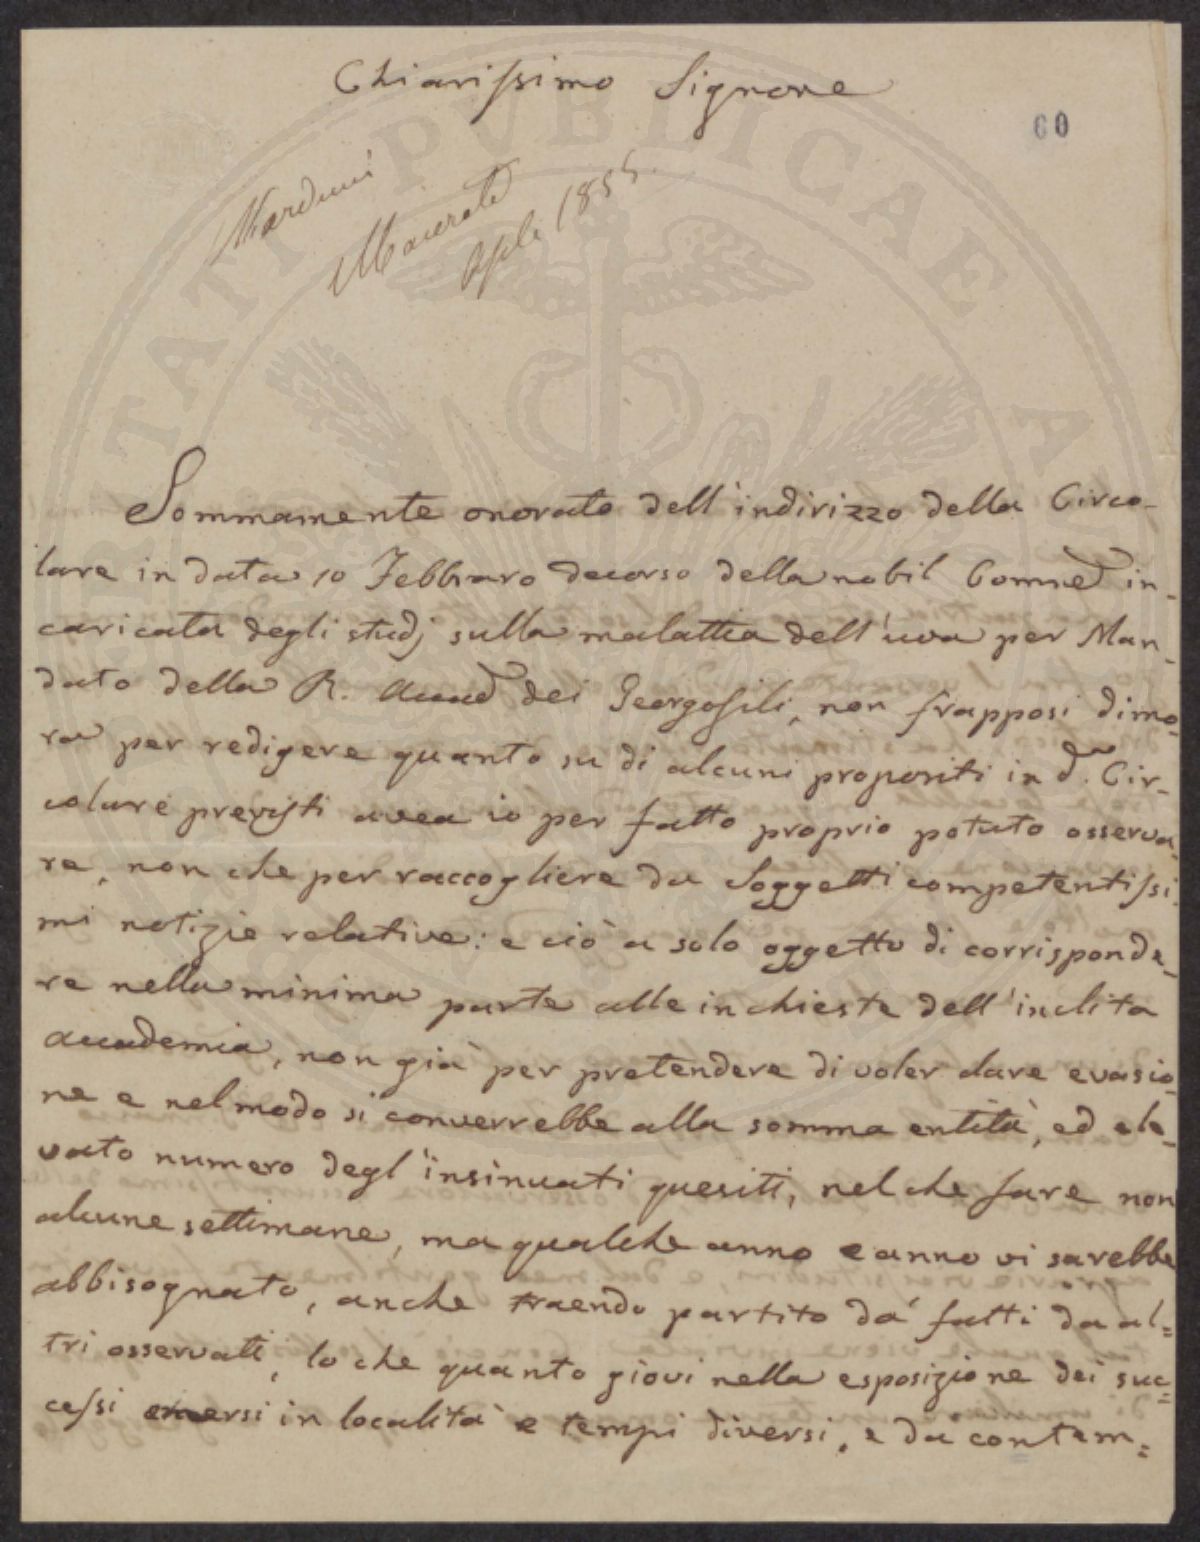 Chiarissimo Signore
60
Narduni
Macerata
Aple 1855.
Sommamente onorato dell'indirizzo della Circo-
lare in data 10 Febbraro decorso della nobil Comne in-
caricata degli studj sulla malattia dell'uva per Man-
dato della R. Accad dei Georgofili, non frapposi dimo-
ra per redigere quanto su di alcuni propositi in d. Cir-
colare previsti avea io per fatto proprio potuto osserva-
re, non che per raccogliere da Soggetti competentissi-
mi notizie relative: e ciò a solo oggetto di corrisponde-
re nella minima parte alle inchieste dell'inclita
Accademia, non già per pretendere di voler dare evasio-
ne e nel modo si converrebbe alla somma entità, ed ele-
vato numero degl'insinuati quesiti, nel che fare non
alcune settimane, ma qualche anno e anno vi sarebbe
abbisognato, anche traendo partito da' fatti da al=
tri osservati, lo che quanto giovi nella esposizione dei suc=
cessi emersi in località e tempi diversi, e da contem=
VERITATI PVBLICAE A